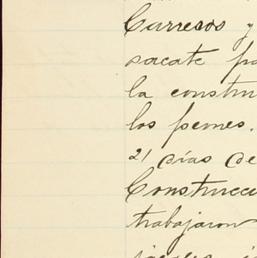 Curresos y
sacate pa
la constru
los peones.
21 días de
Construcci
trabajaron